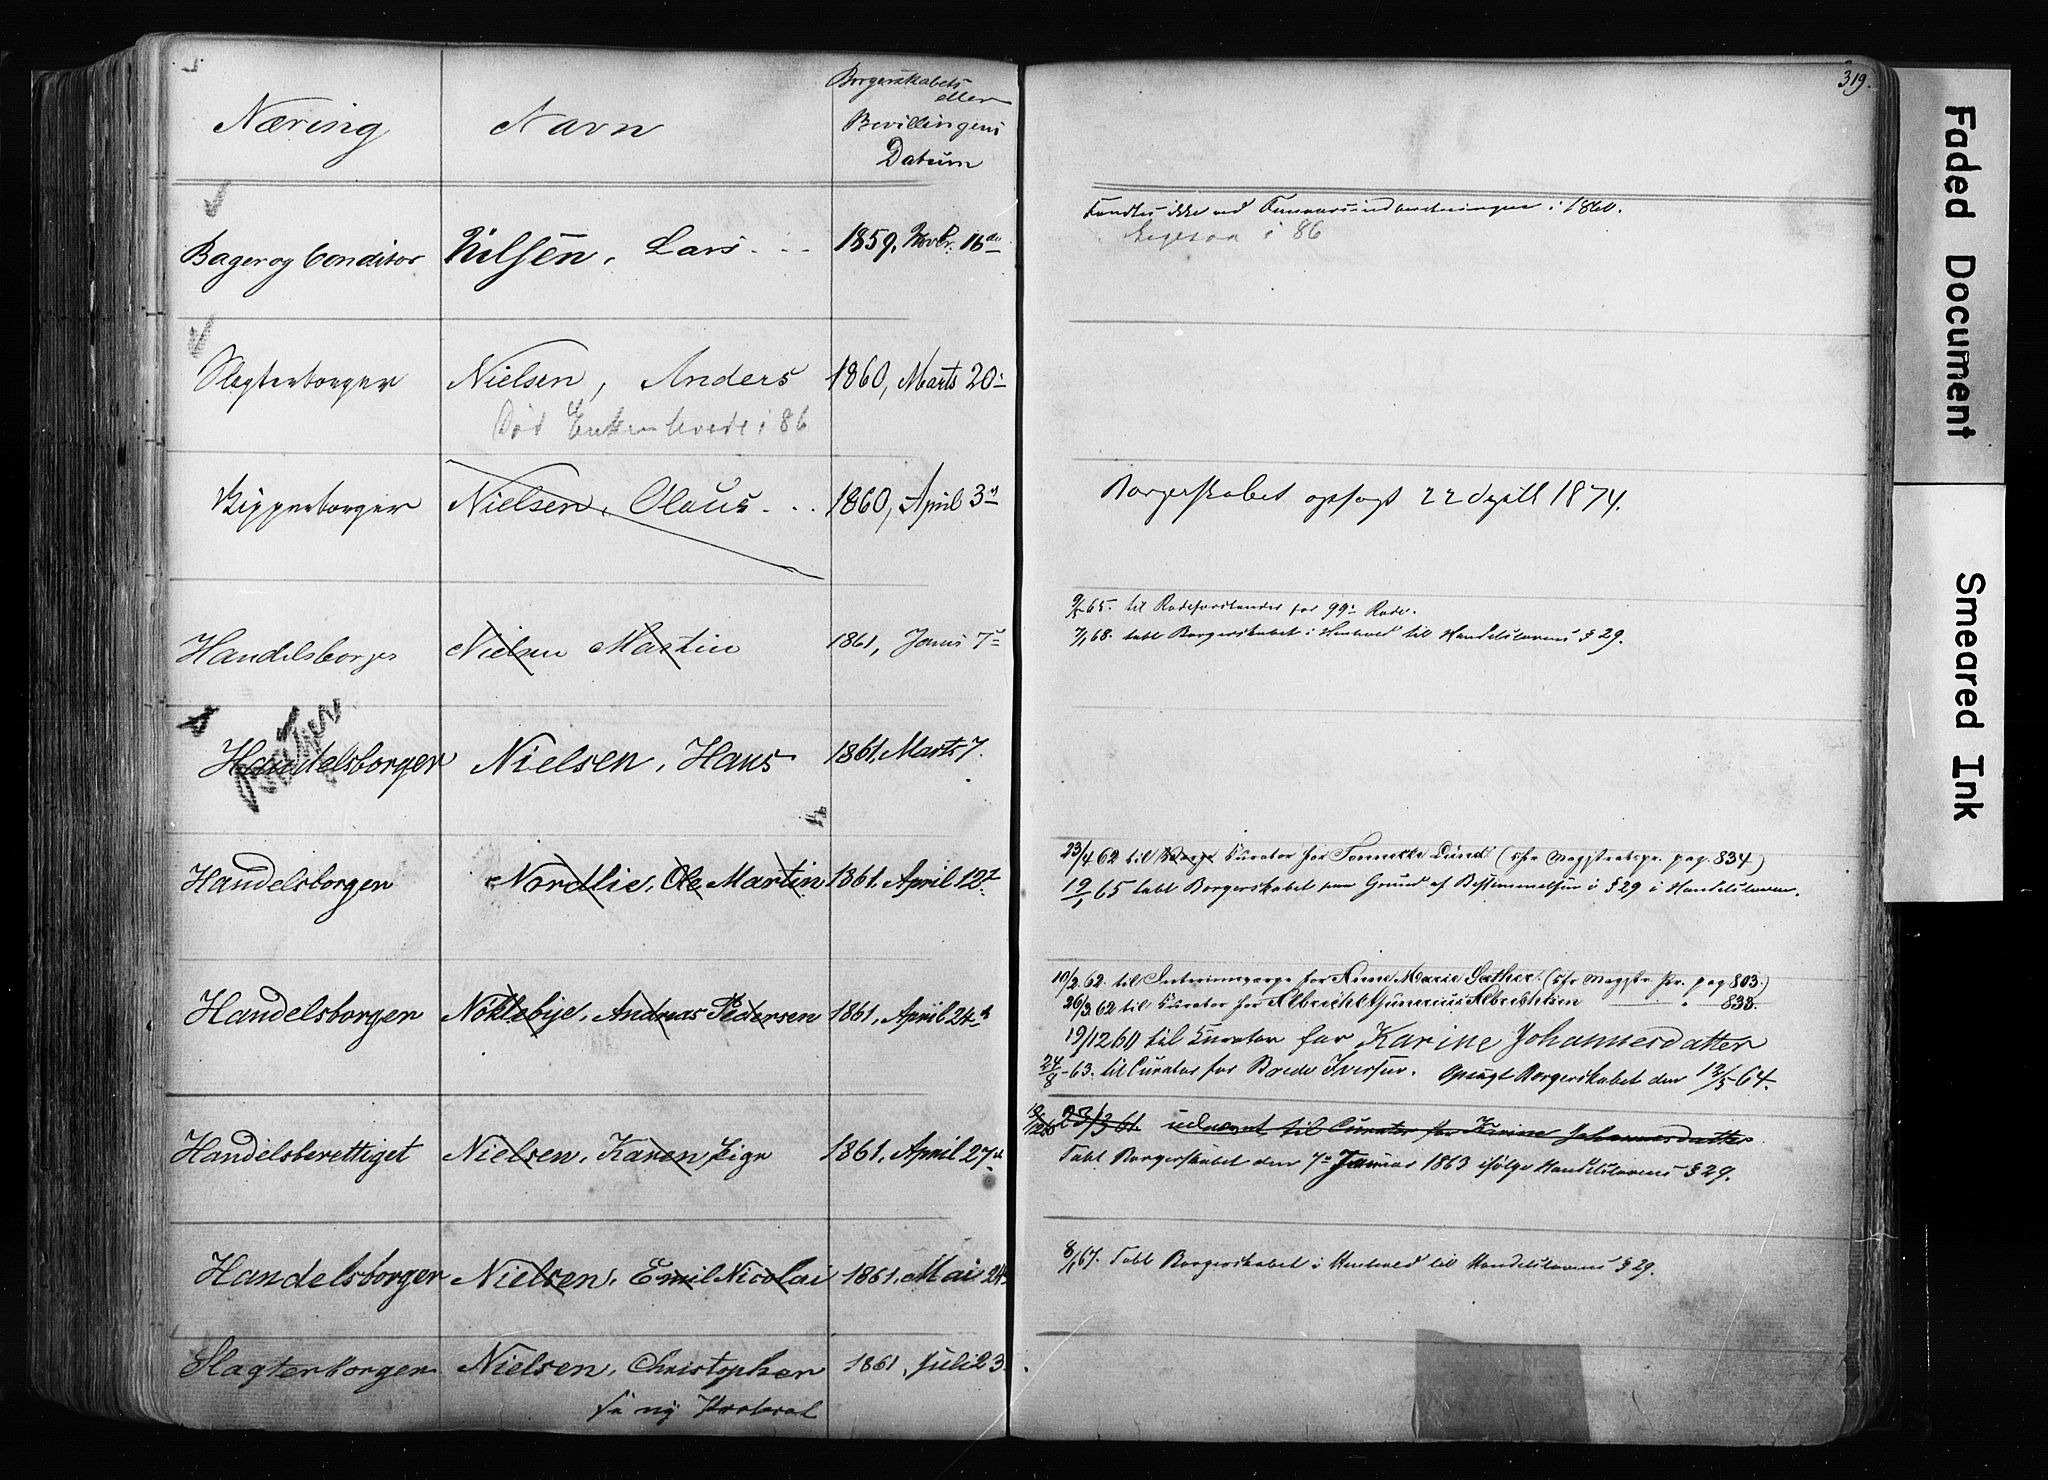 319.
Næring
Navn
Borgerskabets
eller
Bevillingens
Datum
Bager og Conditor
Nilsen, Lars
1859, Novbr. 16de
Fandtes ikke ved i 1860.
i 86
Slagterborger
Nielsen, Anders
1860, Marts 20
Død Enken levede i 86
Kipperborger
Nielsen, Olaus
1860, April 3
Borgerskabet opsagt 22 April 1874.
Handelsborger
Nielsen Martin
1861, Januar 7
65. til Rodeforstander for 99 Rode.
7/1 68. tabt Borgerskabet i Henhold til Handelslovens § 29.
Handelsborger
Nielsen, Hans
1861, Marts 7.
Handelsborger
Nordlie, Ole Martin
1861, April 12
23/4 62 til Værge Curator for Lund (cfr Magistratspr. pag. 834)
19/1 65 tabt Borgerskabet paa Grund af Bestemmelsen i § 29 i Handelsloven.
Handelsborger
Nøklebye, Andreas Pedersen
1861, April 24
10/2 62. til for Anne Marie Sæther. (cfr Magistr. Pr. pag 803.)
26/3 62 til Curator for Albrecht Albrechtsen " 838.
19/12 60 til Curator for Karine Johannesdatter
24/8 - 63. til Curator for Brede Iversen. Opsagt Borgerskabet den 12/5 64.
Handelsberettiget
Nielsen, Karen Pige
1861, April 27
23/3 61 udnævnt til Curator for Karine Johannesdatter
Tabt Borgerskabet den 7 Januar 1863 ifølge Handelslovens § 29.
Handelsborger
Nielsen, Emil Nicolai
1861, Mai 24
8/1 67. Tabt Borgerskabet i Henhold til Handelslovens § 29.
Slagterborger
Nielsen, Christopher
1861, Juli 23.
ny Protocol
Faded Document
Smeared Ink